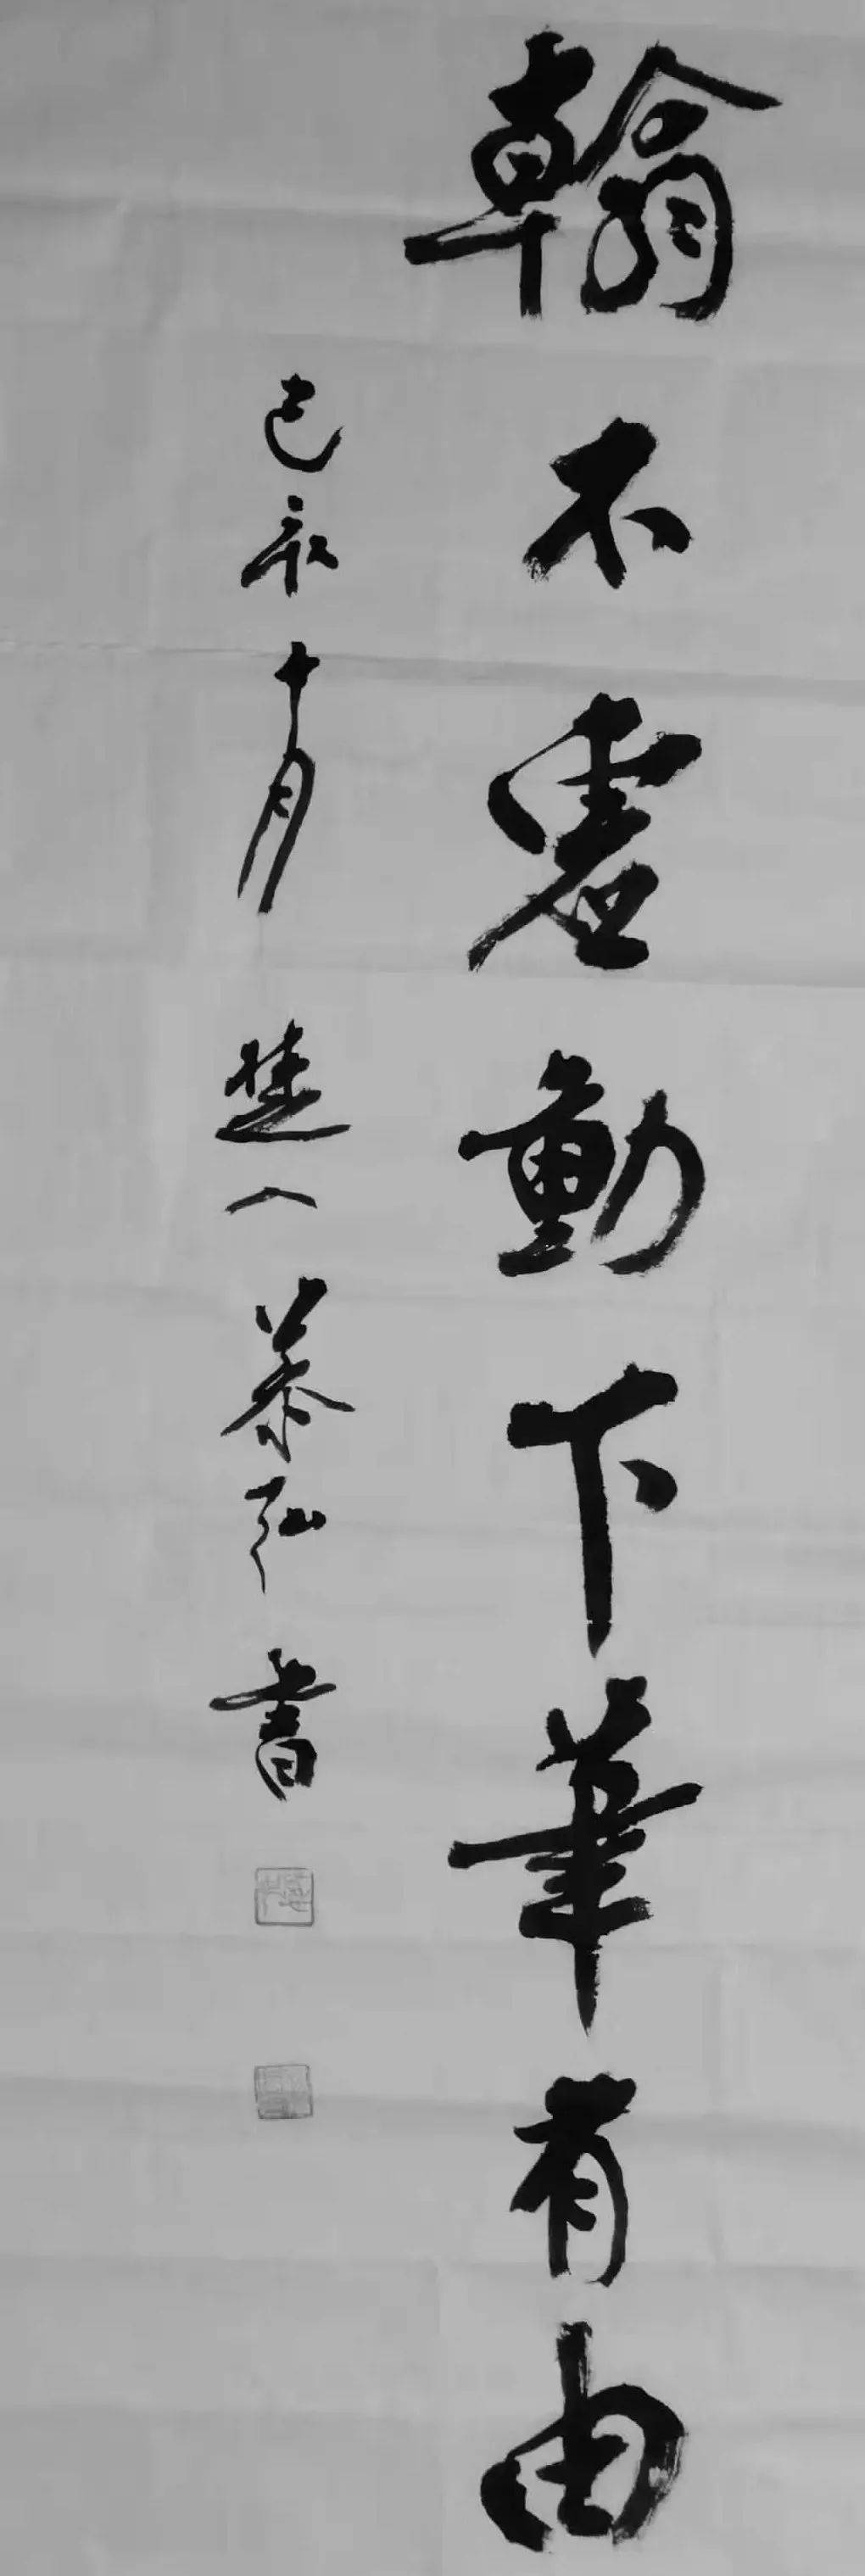 翰不虚動下筆有由
己亥十月楚人慕弘書